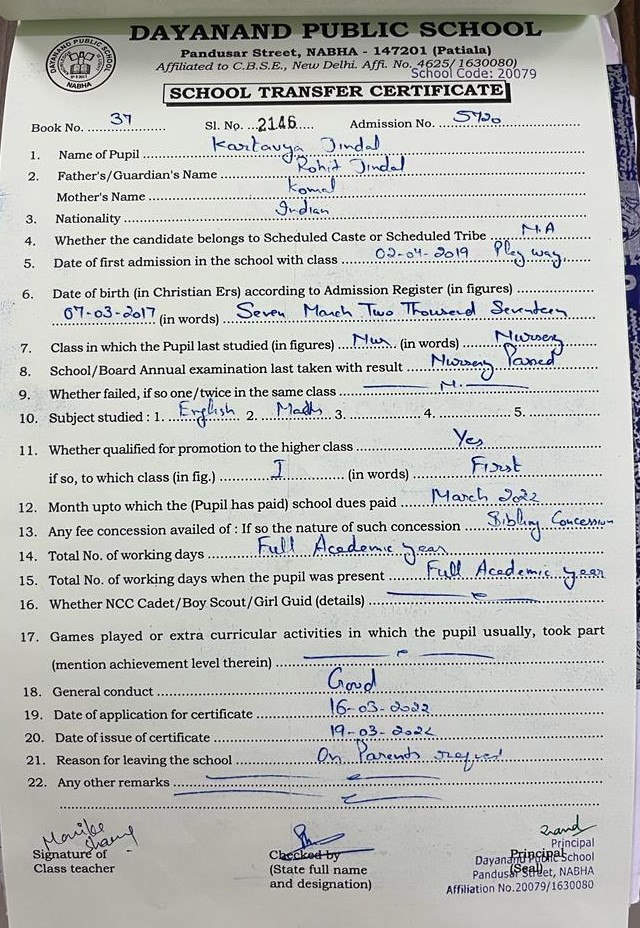 DAYANAND PUBLIC SCHOOL
Pandusar Street, NABHA - 147201 (Patiala)
Affiliated to C.B.S.E., New Delhi. Affi. No. 4625/1630080)
School Code: 20079
DAYANAND PUBLIC SCHOOL
NABHA
SCHOOL TRANSFER CERTIFICATE
Book No. 37 Sl. No. 2146 Admission No. 5720
1. Name of Pupil Kartavya Jindal
2. Father's/Guardian's Name Rohit Jindal
Mother's Name Komal
3. Nationality Indian
4. Whether the candidate belongs to Scheduled Caste or Scheduled Tribe N.A
5. Date of first admission in the school with class 02-04-2019 Play way.
6. Date of birth (in Christian Ers) according to Admission Register (in figures)
07-03-2017 (in words) Seven March Two Thousand Seventeen
7. Class in which the Pupil last studied (in figures) Nur. (in words) Nursery
8. School/Board Annual examination last taken with result Nursery Passed
9. Whether failed, if so one/twice in the same class
10. Subject studied : 1. English 2. Maths 3. 4. 5.
11. Whether qualified for promotion to the higher class Yes
if so, to which class (in fig.) I (in words) First
12. Month upto which the (Pupil has paid) school dues paid March 2022
13. Any fee concession availed of : If so the nature of such concession Sibling Concession
14. Total No. of working days Full Academic year
15. Total No. of working days when the pupil was present Full Academic year
16. Whether NCC Cadet/Boy Scout/Girl Guid (details)
17. Games played or extra curricular activities in which the pupil usually, took part
(mention achievement level therein)
18. General conduct Good
19. Date of application for certificate 16-03-2022
20. Date of issue of certificate 19-03-2022
21. Reason for leaving the school On Parents request
22. Any other remarks
Signature of
Class teacher
Checked by
(State full name
and designation)
Principal
(Seal)
Principal
Dayanand Public School
Pandusar Street, NABHA
Affiliation No.20079/1630080